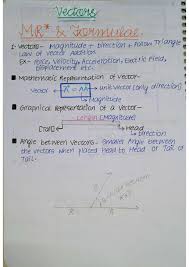 Vectors
MR* & Formulae
1. Vectors - Magnitude + Direction + Follow Triangle
Law of Vector Addition
Ex - Force, Velocity, Acceleration, Electric Field,
Displacement etc.
Mathematical Representation of Vector -
Vector
unit vector (only direction)
Magnitude
Graphical Representation of a Vector -
Length (Magnitude)
(Tail)
Head
Direction
Angle between Vectors - Smaller Angle between
the vectors when placed Head to Head or Tail to
Tail.